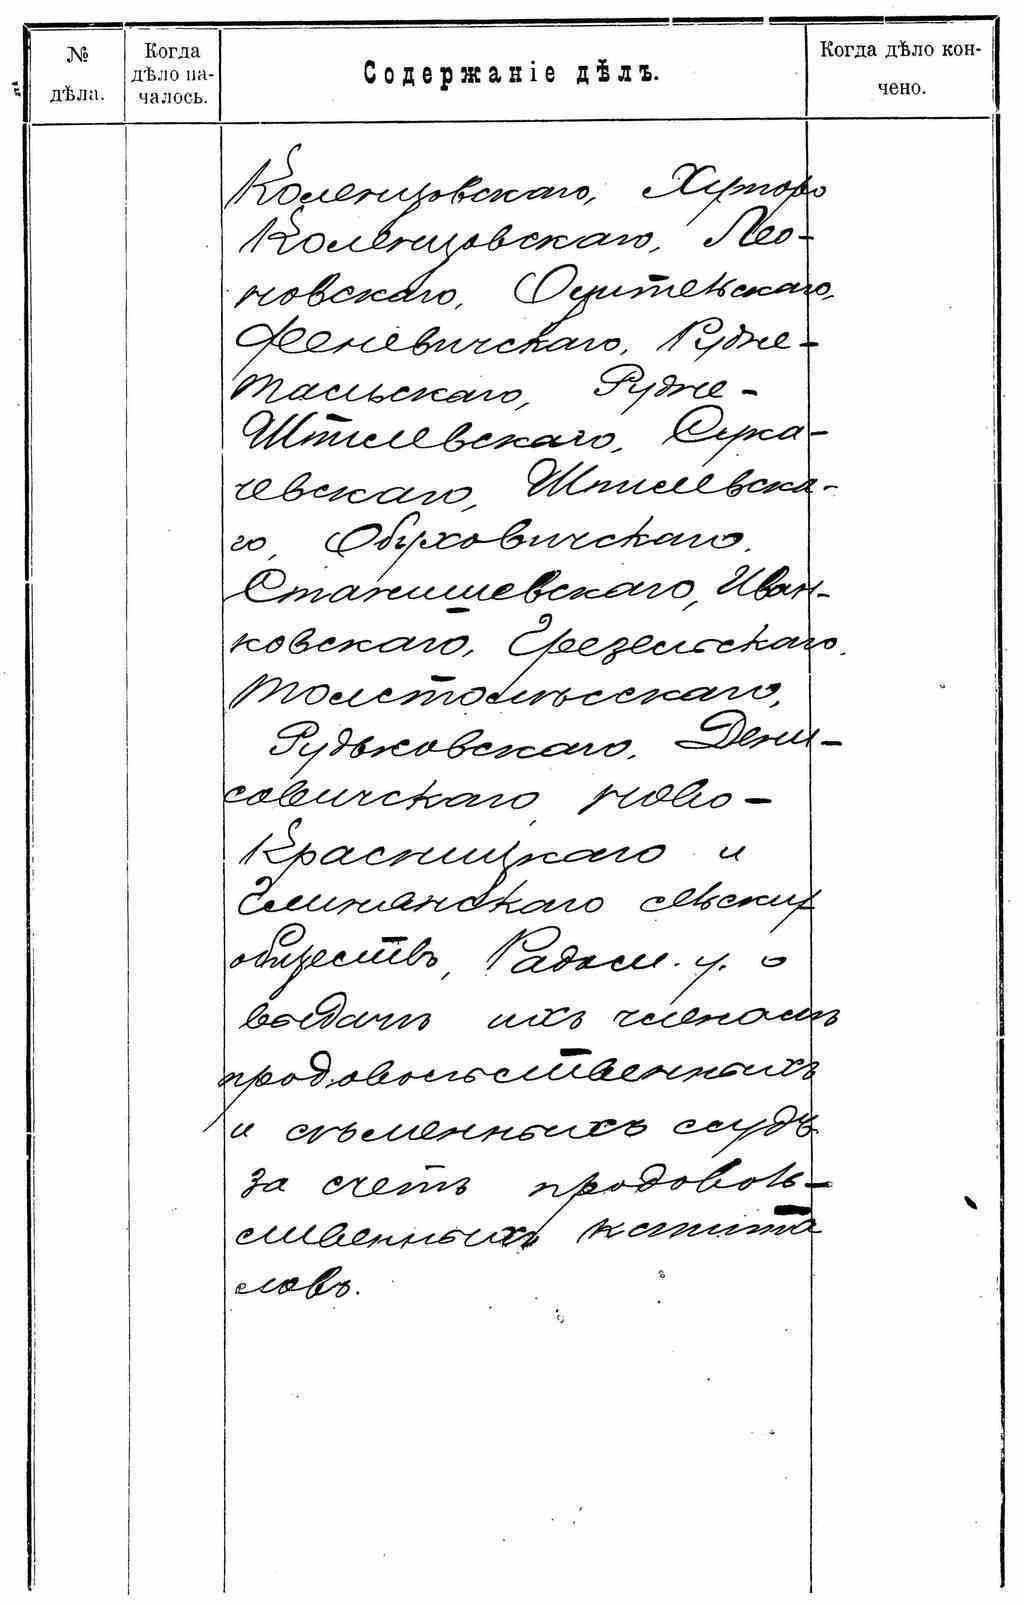 № дѣла.
Когда дѣло на-
чалось.
Содержаніе дѣлъ.
Когда дѣло кон-
чено.
Коленцовскаго, Хуторо
Коленцовскаго, Лео-
новскаго, Оцительскаго,
Феневичскаго, Рудне-
Тальскаго, Рудне-
Шпилевскаго, Сука-
чевскаго, Шпилевска-
го, Обуховичскаго,
Станишевскаго, Иван-
ковскаго, Грезельскаго,
Толстолѣсскаго,
Рудьковскаго, Дени-
совичскаго, Ново-
Красницкаго и
Глинянскаго сельских
обществъ, Радом. у. о
выдачѣ ихъ членамъ
продовольственныхъ
и сѣменныхъ ссудъ
за счетъ продоволь-
ственныхъ капита
ловъ.